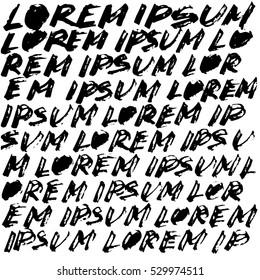 LOREM IPSUM
LOREM IPSUM LO
REM IPSUM LOR
EM IPSUM LOREM
IPSUM LOREM IP
SUM LOREM IPSU
M LOREM IPSUM L
OREM IPSUM LOR
EM IPSUM LOREM
IPSUM LOREM IP
shutterstock.com · 529974511